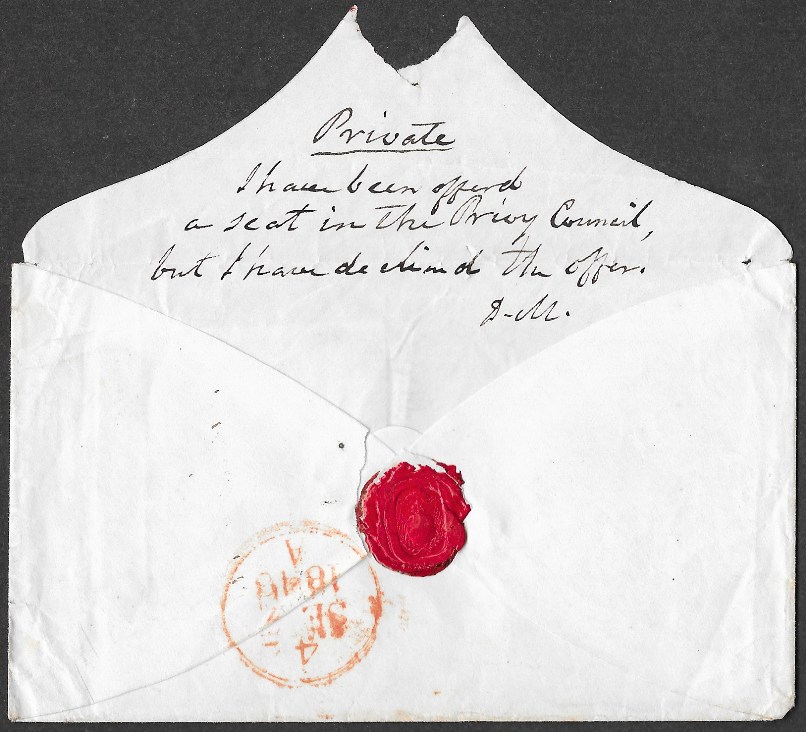 Private
I have been offerd
a seat in the Privy Council,
but I have declined the offer.
D-M.
4
SE